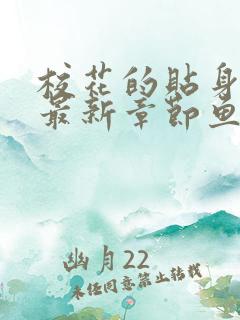 校花的贴身
最新章节鱼
幽月22
未经同意禁止转载